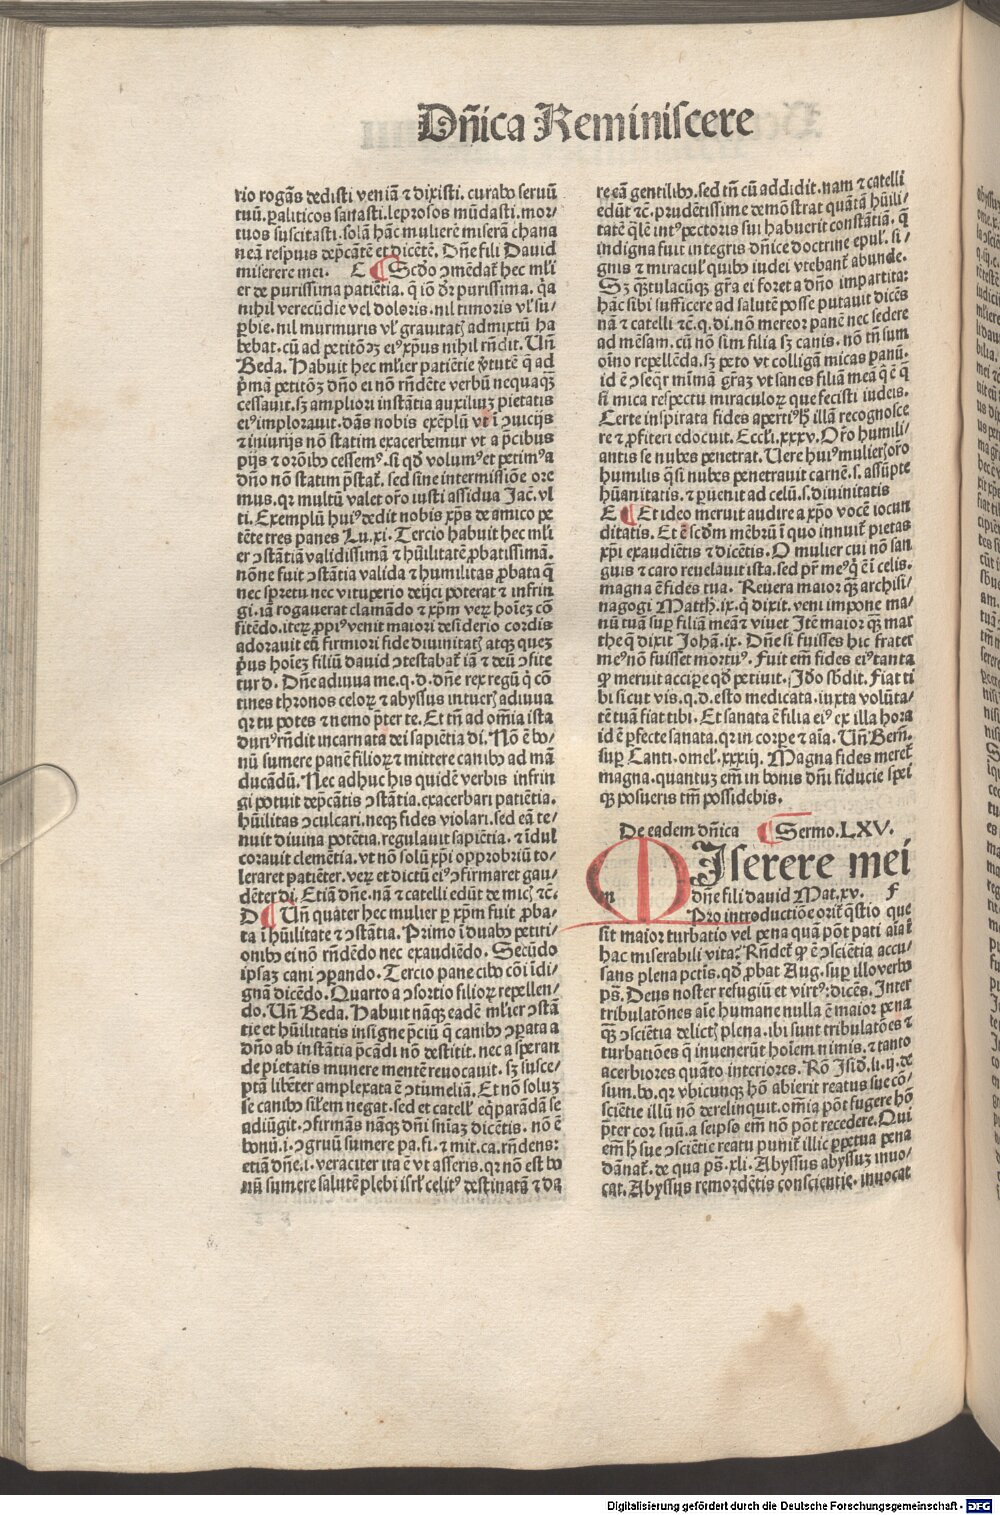 Dn̄ica Reminiscere
rio rogās dedisti veniā ⁊ dixisti. curabo seruū
tuū. ꝑaliticos sanasti. leprosos mūdasti. mor⸗
tuos suscitasti. solā hāc mulierē miserā chana
neā respuis dep̄cātē et dicētē. Dn̄e fili Dauid
miserere mei. C Scd̓o ↄmēdat̄ hec mľi
er de purissima patiētia. q̄ iō dr̄ purissima. q̄a
nihil verecūdie vel doloris. nil timoris vľ su⸗
ꝑbie. nil murmuris vľ grauitatꝭ admixtū ha
bebat. cū ad petitōꝫ eiꝰ xp̄us nihil rn̄dit. Vn̄
Beda. Habuit hec mľier patiētie v̓tutē q̄ ad
p̓mā petitōꝫ dn̄o ei nō rn̄dēte verbū nequaqꝫ
cessauit. sꝫ ampliori instātia auxiliuꝫ pietatis
eiꝰ implorauit. dās nobis exēplū vt ī ↄuicijs
⁊ iniurijs nō statim exacerbemur vt a p̄cibus
pijs ⁊ orōibꝰ cessemꝰ. si qd̓ volumꝰ et petimꝰ a
dn̄o nō statim p̄stat̄. sed sine intermissiōe ore
mus. qꝛ multū valet or̄o iusti assidua Jac̄. vl
ti. Exemplū huiꝰ dedit nobis xp̄s de amico pe
tēte tres panes Lu.xi. Tercio habuit hec mľi
er ↄstātiā validissimā ⁊ hūilitatē ꝓbatissimā.
nōne fuit ↄstātia valida ⁊ humilitas ꝓbata q̄
nec spretu nec vituperio deijci poterat ⁊ infrin
gi. iā rogauerat clamādo ⁊ xp̄m veꝝ hoīeꝫ cō
fitēdo. iteꝝ ꝓpiꝰ venit maiori desiderio cordis
adorauit eū firmiori fide diuinitatꝭ atqꝫ queꝫ
p̓us hoīeꝫ filiū dauid ↄtestabat̄ iā ⁊ deū ↄfite
tur d. Dn̄e adiuua me. q.d. dn̄e rex regū q̓ cō
tines thronos celoꝝ ⁊ abyssus intuerꝭ adiuua
qꝛ tu potes ⁊ nemo p̄ter te. Et tn̄ ad om̄ia ista
duriꝰ rn̄dit incarnata dei sapiētia di. Nō ē bo⸗
nū sumere panē filioꝝ ⁊ mittere canibꝰ ad mā
ducādū. Nec adhuc his quidē verbis infrin
gi potuit dep̄cātis ↄstātia. exacerbari patiētia.
hūilitas ↄculcari. neqꝫ fides violari. sed eā te⸗
nuit diuina potētia. regulauit sapiētia. ⁊ īdul
corauit clemētia. vt nō solū xp̄i opprobriū to⸗
leraret patiēter. veꝝ et dictū eiꝰ ↄfirmaret gau⸗
dēter di. Etiā dn̄e. nā ⁊ catelli edūt de micꝭ ⁊c̄.
D Vn̄ quater hec mulier ꝑ xp̄m fuit ꝓba⸗
ta ī hūilitate ⁊ ↄstātia. Primo ī duabꝰ petiti⸗
onibꝰ ei nō rn̄dēdo nec exaudiēdo. Secūdo
ipsaꝫ cani ↄꝑando. Tercio pane cibo cōi īdi⸗
gnā dicēdo. Quarto a ↄsortio filioꝝ repellen⸗
do. Vn̄ Beda. Habuit nāqꝫ eadē mľier ↄstā
tie et hūilitatis insigne p̄ciū q̄ canibꝰ ↄꝑata a
dn̄o ab instātia p̄cādi nō destitit. nec a speran
de pietatis munere mentē reuocauit. sꝫ susce⸗
ptā libēter amplexata ē ↄtumeliā. Et nō soluꝫ
se canibꝰ siľem negat. sed et catellꝭ eq̓parādā se
adiūgit. ↄfirmās nāqꝫ dn̄i sn̄iaꝫ dicētis. nō ē
bonū. i. ↄgruū sumere pa. fi. ⁊ mit. ca. rn̄dens:
etiā dn̄e. i. veraciter ita ē vt asseris. qꝛ nō est bo
nū sumere salutē plebi isrľ celitꝰ destinatā ⁊ da
re eā gentilibꝰ. sed tn̄ cū addidit. nam ⁊ catelli
edūt ⁊c̄. prudētissime demōstrat quātā hūili⸗
tatē q̄lē intꝰ pectoris sui habuerit constātiā. q̄
indigna fuit integris dn̄ice doctrine epul̄. si⸗
gnis ⁊ miracul̄ quibꝰ iudei vtebant̄ abunde.
Sꝫ qꝫtulacūqꝫ gr̄a ei foret a dn̄o impartita:
hāc sibi sufficere ad salutē posse putauit dicēs
nā ⁊ catelli ⁊c̄. q.di. nō mereor panē nec sedere
ad mēsam. cū nō sim filia sꝫ canis. nō tn̄ sum
oīno repellēda. sꝫ peto vt colligā micas panū.
id ē ↄseqr̄ mīmā gr̄aꝫ vt sanes filiā meā q̄ ē q̄
si mica respectu miraculoꝝ que fecisti iudeis.
Certe inspirata fides apertiꝰ hꝭ illā recognosce
re ⁊ ꝓfiteri edocuit. Eccľi.xxxv. Or̄o humili⸗
antis se nubes penetrat. Uere huiꝰ mulierꝭ or̄o
humilis q̄si nubes penetrauit carnē. s. assūpte
hūanitatis. ⁊ ꝑuenit ad celū. s. diuinitatis
E Et ideo meruit audire a xp̄o vocē iocun
ditatis. Et ē scd̓m mēbrū ī quo innuit̄ pietas
xp̄i exaudiētis ⁊ dicētis. O mulier cui nō san
guis ⁊ caro reuelauit ista. sed pr̄ meꝰ q̓ ē ī celis.
magna ē fides tua. Reuera maior qꝫ archisi⸗
nagogi Matth.ix. q̓ dixit. veni impone ma⸗
nū tuā suꝑ filiā meā ⁊ viuet Itē maior qꝫ mar
the q̄ dixit Johā.ix. Dn̄e si fuisses hic frater
meꝰ nō fuisset mortuꝰ. Fuit em̄ fides eiꝰ tanta
ꝙ meruit accipe qd̓ petiuit. Jdo sb̓dit. Fiat ti
bi sicut vis. q.d. esto medicata. iuxta volūta⸗
tē tuā fiat tibi. Et sanata ē filia eiꝰ ex illa hora
id ē ꝑfecte sanata. qꝛ in corpe ⁊ aīa. Vn̄ Bern̄.
suꝑ Canti. omeľ.xxxij. Magna fides meret̄
magna. quantuꝫ em̄ in bonis dn̄i fiducie spei
qꝫ posueris tm̄ possidebis.
De eadem dn̄ica Sermo.LXV.
MIserere mei
dn̄e fili dauid Mat.xv. F
Pro introductiōe orit̄ q̄stio que
sit maior turbatio vel pena quā pōt pati aīa ī
hac miserabili vita. Rn̄det̄ ꝙ ē ↄsciētia accu⸗
sans plena pctīs. qd̓ ꝓbat Aug. suꝑ illo verbo
ps̄. Deus noster refugiū et virtꝰ: dicēs. Inter
tribulatōnes aīe humane nulla ē maior pena
qꝫ ↄsciētia delictꝭ plena. ibi sunt tribulatōes ⁊
turbatiōes q̄ inuenerūt hoīem nimis. ⁊ tanto
acerbiores quāto interiores. Rō Isid̓. li.ij. de
sum. bo. qꝛ vbicunqꝫ hō abierit reatus sue cō⸗
sciētie illū nō derelinquit. om̄ia pōt fugere hō
p̄ter cor suū. a seipso em̄ nō pōt recedere. Qui
em̄ hꝭ sue ↄsciētie reatu punit̄ illic ꝑpetua pena
dānat̄. de qua ps̄.xli. Abyssus abyssuꝫ inuo⸗
cat. Abyssus remordētis conscientie. inuocat
Digitalisierung gefördert durch die Deutsche Forschungsgemeinschaft - DFG